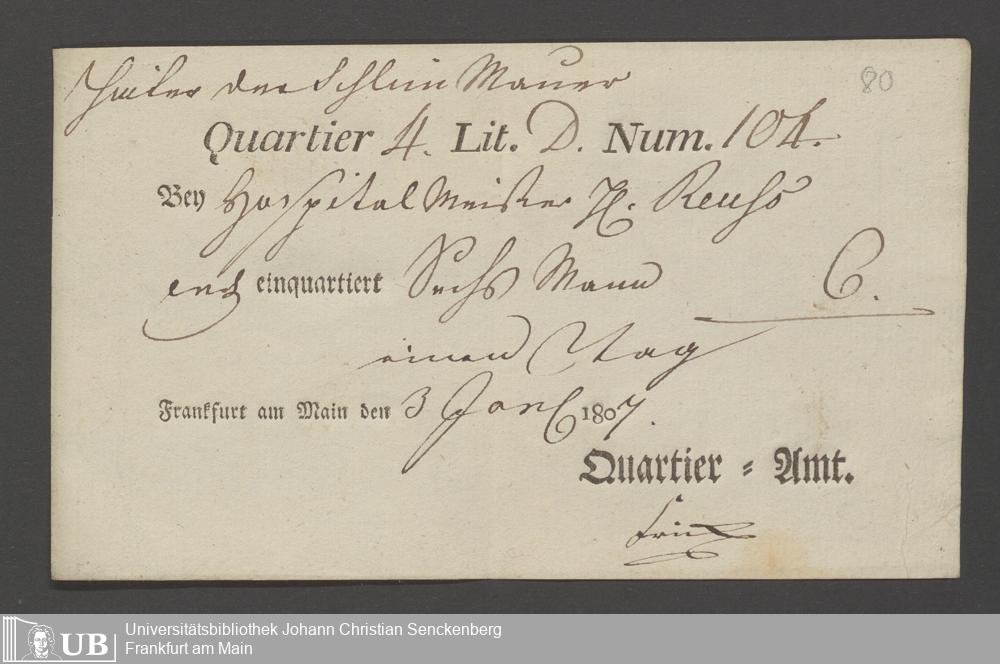 Hinter der Schlim Mauer
80
Quartier 4. Lit. D. Num. 104.
Bey Hospital Meister H. Reuss
einquartiert Sechs Mann 6.
einen Tag
Frankfurt am Main den 3 1807.
Quartier = Amt.
UB
Universitätsbibliothek Johann Christian Senckenberg
Frankfurt am Main